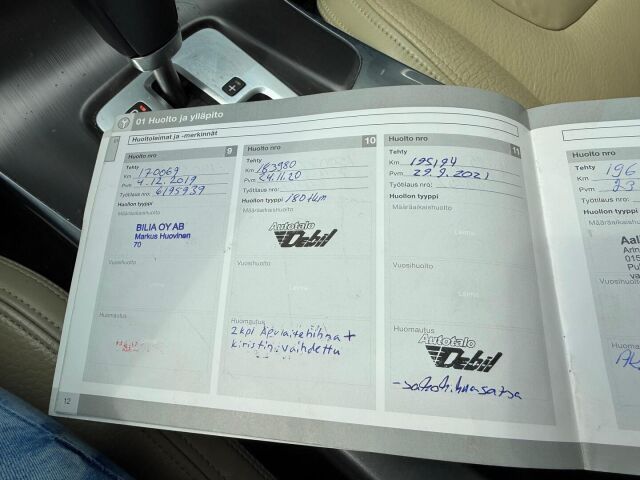 01 Huolto ja ylläpito
Huoltoleimat ja -merkinnät
Huolto nro 9
Tehty
Km 170069
Pvm 4.12.2019
Työtilaus nro: 6195939
Huollon tyyppi
Määräaikaishuolto
BILIA OY AB
Markus Huovinen
70
Vuosihuolto
Huomautus
12
Huolto nro 10
Tehty
Km 183980
Pvm 24.11.20
Työtilaus nro:
Huollon tyyppi 180 tkm
Määräaikaishuolto
Autotalo
Debil
Vuosihuolto
Huomautus
2 kpl Apulaitehihna +
kiristin vaihdettu
Huolto nro 11
Tehty
Km 195194
Pvm 29.9.2021
Työtilaus nro:
Huollon tyyppi
Määräaikaishuolto
Leima
Vuosihuolto
Leima
Huomautus
Autotalo
Debil
Huolto nro
Tehty
Km 196
Pvm 23
Työtilaus nro
Huollon tyyppi
Määräaikaishuolto
Aal
Arin
015
Pu
va
Vuosihuolto
Huoma